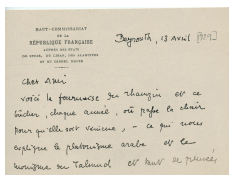 HAUT-COMMISSARIAT
DE LA
RÉPUBLIQUE FRANÇAISE
AUPRÈS DES ÉTATS
DE SYRIE, DU LIBAN, DES ALAOUITES
ET DU DJEBEL DRUZE
Beyrouth, 13 Avril
Cher Ami
voici la fournaise du et ce
bûcher, chaque année, où passe la chair
pour qu'elle soit vaincue, – ce qui nous
explique le platonisme arabe et le
monisme du Talmud et tant de pensées